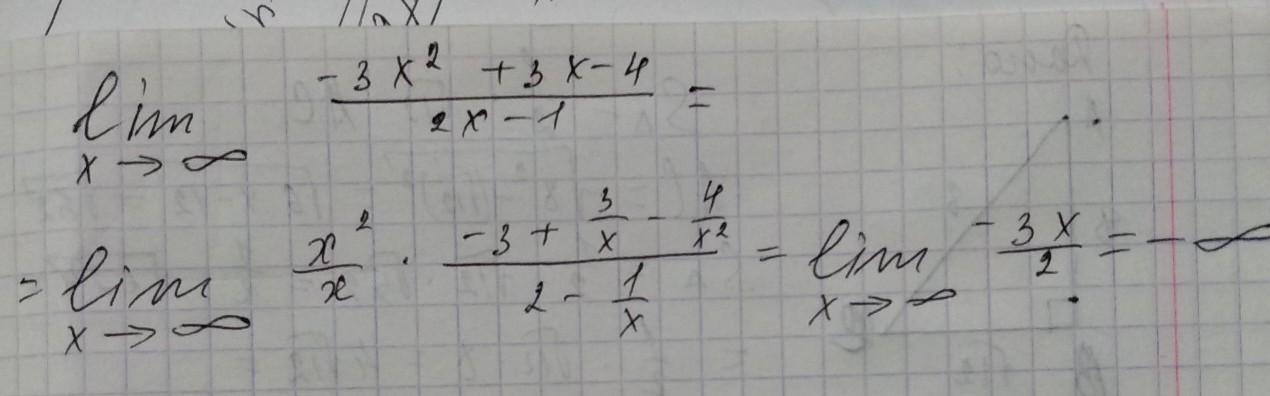 lim x → ∞ (-3x² + 3x - 4)/(2x - 1) =
= lim x → ∞ x²/x · (-3 + 3/x - 4/x²)/(2 - 1/x) = lim x → ∞ -3x/2 = -∞